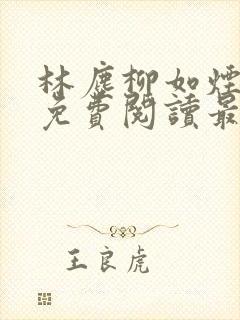 林塵柳如煙
免費閱讀最
王良虎